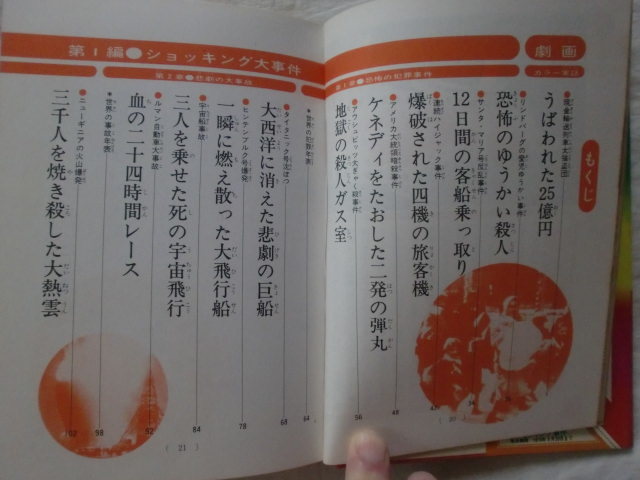 劇画
カラー実話
もくじ
第1編●ショッキング大事件
第1章●恐怖の犯罪事件
●現金輸送列車大強盗団
うばわれた25億円
●リンドバーグの愛児ゆうかい事件
恐怖のゆうかい殺人
●サンタ・マリア号反乱事件
12日間の客船乗っ取り
●連続ハイジャック事件
爆破された四機の旅客機 42
●アメリカ大統領暗殺事件
ケネディをたおした二発の弾丸 48
●アウシュビッツ大ぎゃく殺事件
地獄の殺人ガス室 56
20
第2章●悲劇の大事故
＊世界の犯罪年表 64
●タイタニック号沈ぼつ
大西洋に消えた悲劇の巨船 68
●ヒンデンブルク号爆発
一瞬に燃え散った大飛行船 78
●宇宙船事故
三人を乗せた死の宇宙飛行 84
●ルマン自動車大事故
血の二十四時間レース 92
＊世界の事故年表 98
●ニューギニアの火山爆発
三千人を焼き殺した大熱雲 102
21